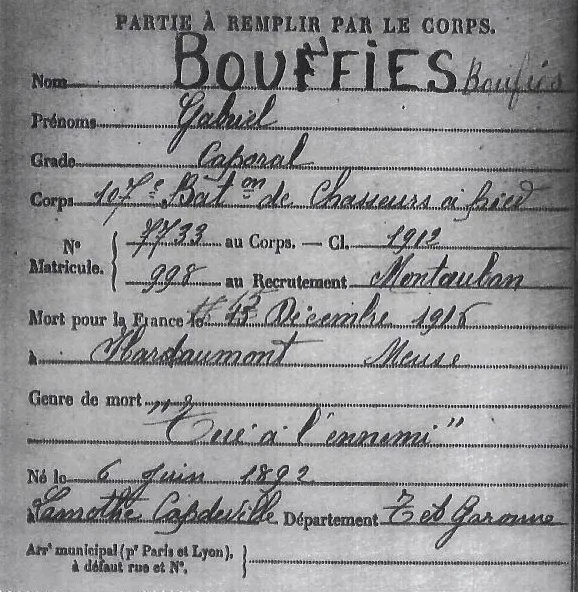 PARTIE À REMPLIR PAR LE CORPS.
Nom BOUFFIES
Prénoms Gabriel
Grade Caporal
Corps 107e Bat on de Chasseurs à pied
No Matricule. { 7733 au Corps. — Cl. 1912
998 au Recrutement Montauban
Mort pour la France le 15 Décembre 1916
à Hardaumont Meuse
Genre de mort
"Tué à l'ennemi"
Né le 6 Juin 1892
à Lamothe Capdeville Département T et Garonne
Arrt municipal (pr Paris et Lyon), à défaut rue et No. }